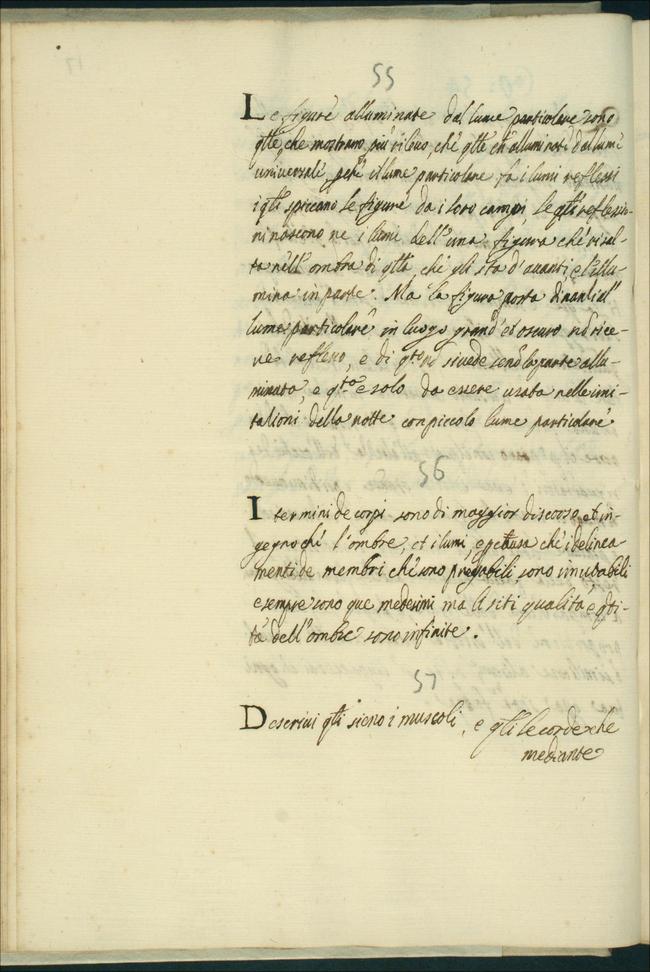 55
Le figure alluminate dal lume particolare sono
q̃lle, che mostrano più rilieuo, chè q̃lle ch'alluminate dal lume
uniuersale, perche il lume particolare fà i lumi reflessi
i q̃li spiccano le figure da i loro campi, le q̃li reflessio-
ni nascono ne i lumi dell'una figura chè risal-
ta nell'ombra di q̃lla, chè gli sta d'auanti e l'illu-
mina in parte. Ma la figura posta dinanti al
lume particolare in luogo grande et oscuro nō rice-
ue reflesso, e di q̃sta nō si uede senō la parte allu-
minata, e q̃sta e solo da essere usata nelle imi-
tationi della notte con piccolo lume particolare
56
I termini de corpi sono di maggior discorso, et in-
gegno chè l'ombre, et i lumi, e p causa chè i delinea-
menti de membri chè sono piegabili, sono imutabili
e sempre sono que medesimi ma li siti qualità, e q̃ti-
tà dell'ombre sono infinite.
57
Descriui q̃li sieno i muscoli, e q̃li le corde che
mediante